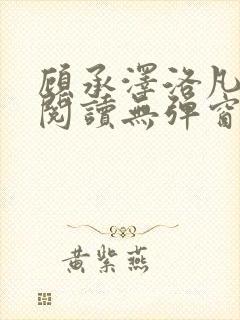 顧承澤洛凡
閱讀無彈窗
黃紫燕